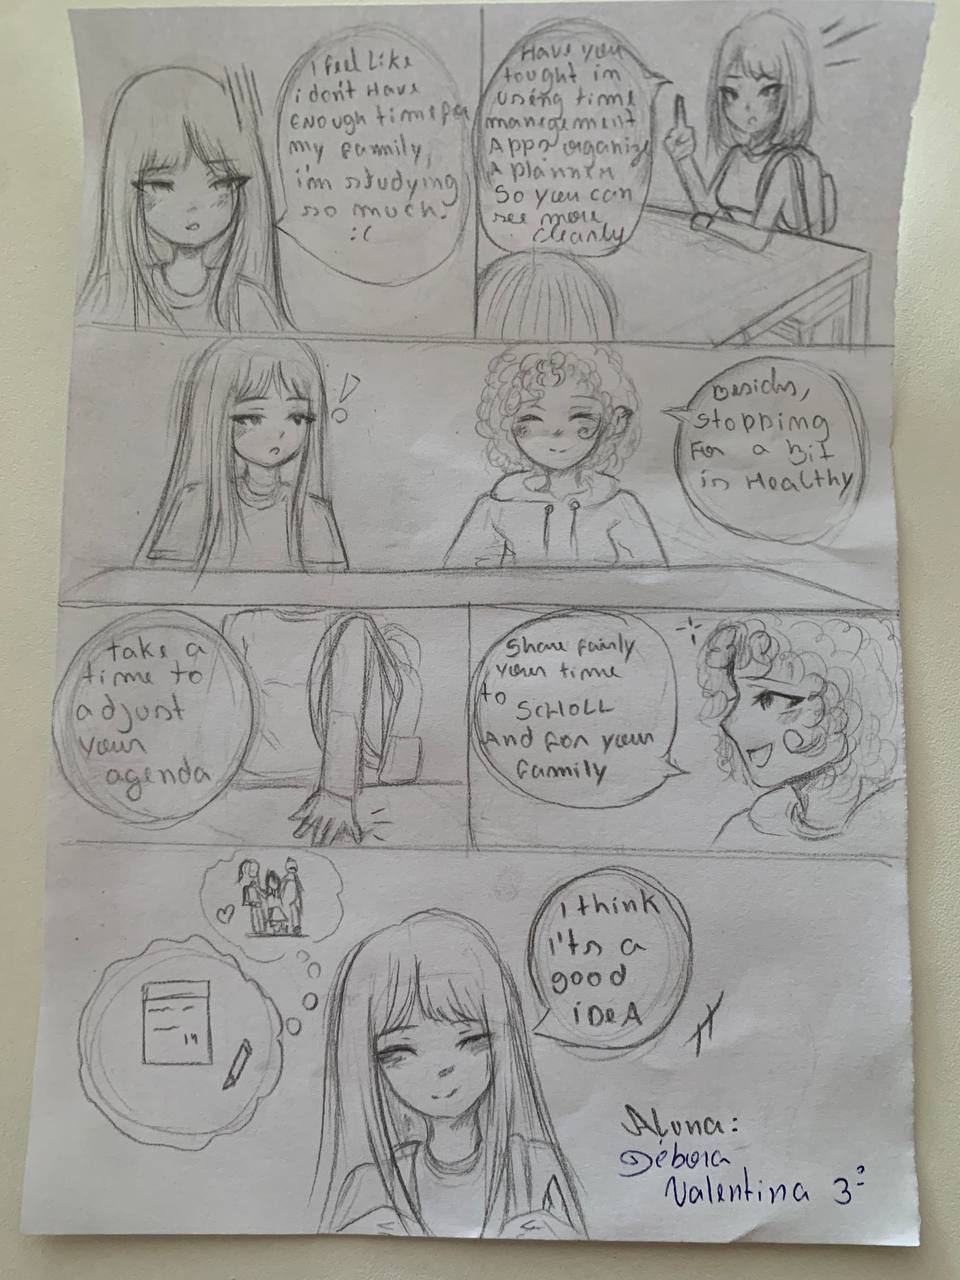 I feel like
i don't Have
Enough time for
my family,
i'm studying
so much.
:(
Have you
tought in
using time
management
App? organize
A planner
So you can
see more
clearly
!
Besides,
stopping
For a Bit
is Healthy
take a
time to
adjust
your
agenda
Share fairly
your time
to
SCHOLL
And for your
family
I think
I'ts a
good
iDeA
Aluna:
Débora
Valentina 3º